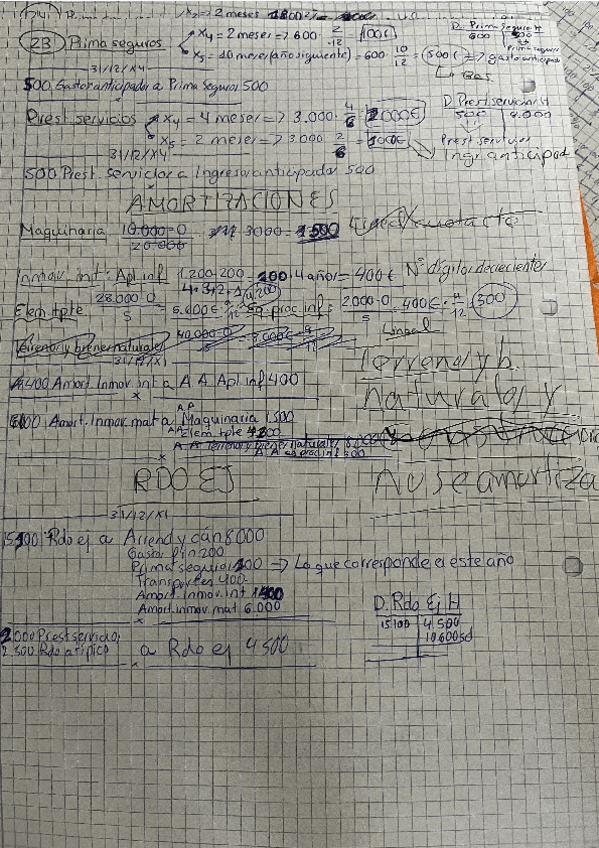 X₂ => 2 meses
2B Prima seguros X₄ = 2 meses => 600 · 2/12 = 100€
X₅ = 10 meses (año siguiente) = 600 · 10/12 = 500€ => gasto anticipado
D. Prima Seguro H
600 500
Prima seguro
31/12/X4
500 Gastos anticipados a Prima Seguros 500
Prest. servicios X₄ = 4 meses => 3.000 · 4/6 = 2000€
X₅ = 2 meses => 3.000 2/6 = 1000€
D. Prest servicios H
500 4.000
Prest servicios
Ingr. anticipad
31/12/X4
500 Prest. servicios a Ingresos anticipados 500
AMORTIZACIONES
Maquinaria 10.000-0 / 20.000 · 3000 = 1500
Inmov. int: Apl. inf 1.200-200 · 4 años = 400€ Nº dígitos decrecientes
4+3+2+1
Elem. tpte 28.000-0 / 5 = 5.600€ · 9/12 Eq. proc. inf: 2000-0 / 5 = 400€ · 9/12 = 300
Lineal
Terrenos y bienes naturales 40.000-0
31/12/X1
400 Amort. Inmov. int a A.A Apl. inf 400
Terreno y b.
naturales y
No se amortiza
Amort. Inmov. mat a A.A Maquinaria 1.500
A.A Elem. tpte 4200
A.A Terreno y bienes naturales
A.A eq. proc. inf 300
RDO EJ
31/12/X1
15100 Rdo ej a Arrend y cán 8000
Gastos fin 200
Prima seguros 100 => Lo que corresponde el este año
Transportes 400
Amort. inmov. int
Amort. inmov. mat 6.000
D. Rdo Ej H
15100 4500
10600 Sd
2000 Prest servicios
2.500 Rdo atípico a Rdo ej 4500